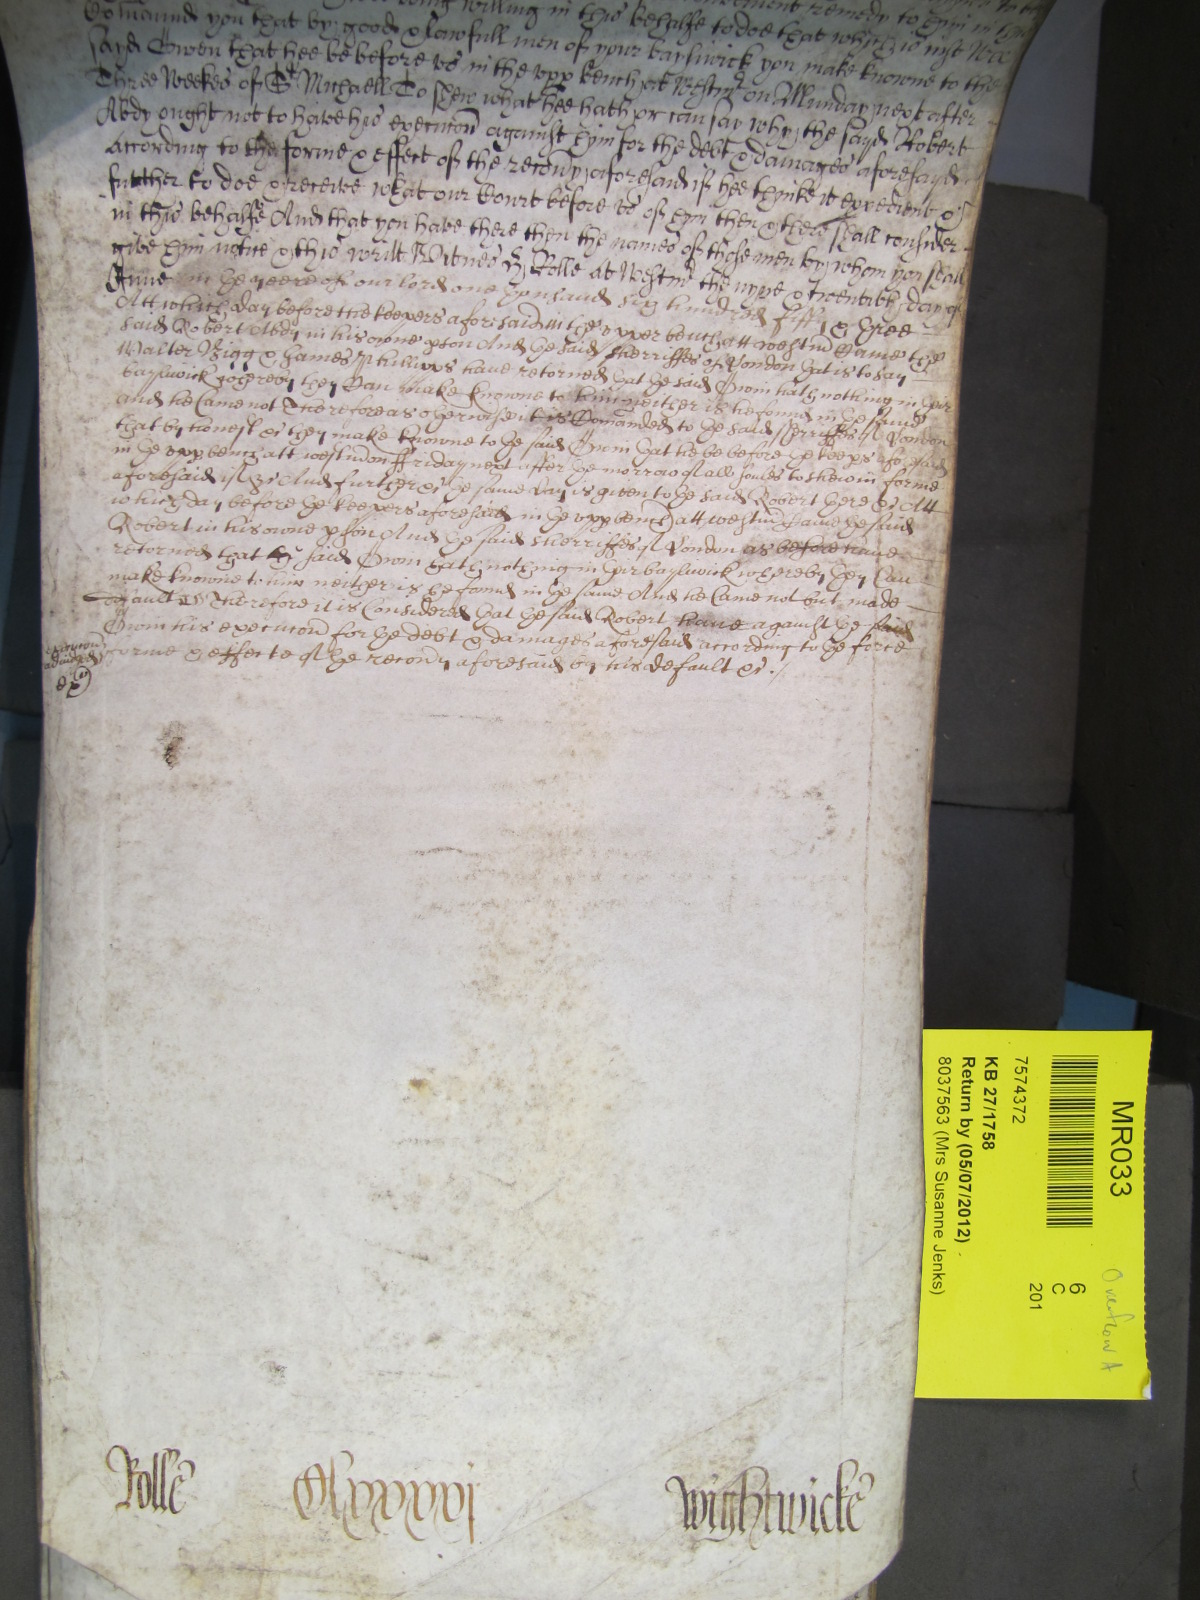 being willing in this behalfe to doe that which is iust Wee
Co'maund you that by good & lawfull men of your bayliwick you make knowne to the
sayd Owen that hee be before vs in the vpp bench at Westm' on Munday next after
Three Weekes of St Michaell To shew what hee hath or can say why the sayd Robert
Abdy ought not to have his execucon against hym for the debt & damages aforesayd
according to the forme & effect of the recouy aforesaid if hee thinke it expedient &
further to doe & receive what our Court before vs of hym then & there shall consider
in this behalfe And that you have there then the names of those men by whom you shall
give hym notice & this writt Witnes H: Rolle at Westm' the nyne & twentith day of
June in he yeere of our lord one thousand six hundred fifty & three
Att which day before the keepers aforesaid in the vpper bench att westm' Came the
said Robert Abdy in his owne pson And he said Sherriffes of London hat is to say
Walter Bigg & James Phillipps have returned hat he said Owin hath nothing in heir
baylywick whereby they Can make knowne to him neither is he found in he same
and he Came not Therefore as otherwise it is Comanded to he said sherriffes of London
that by honest &c they make knowne to he said Owin hat he be before he keeps aforesaid
in he vpp bench att westm' on ffriday next after he morrow of all soules to shew in forme
aforesaid if &c And further &c he same day is given to he said Robert here &c Att
which day before he keepers aforesaid in he vpp bench att westm' Came he said
Robert in his owne pson And he said Sherriffes of London as before have
returned that he said Owin hath nothing in heir baylywick whereby they Can
make knowne to him neither is he found in he same And he Came not but made
default Therefore it is Considered hat he said Robert have against he said
Owin his execucon for he debt & damages aforesaid according to he force
forme & effecte of he recouy aforesaid by his default &c.
execucon
adiudged
Rolle
Clxxxxvj
Wightwicke
MR033
7574372
KB 27/1758
Return by (05/07/2012)
8037563 (Mrs Susanne Jenks)
6
C
201
Overflow A